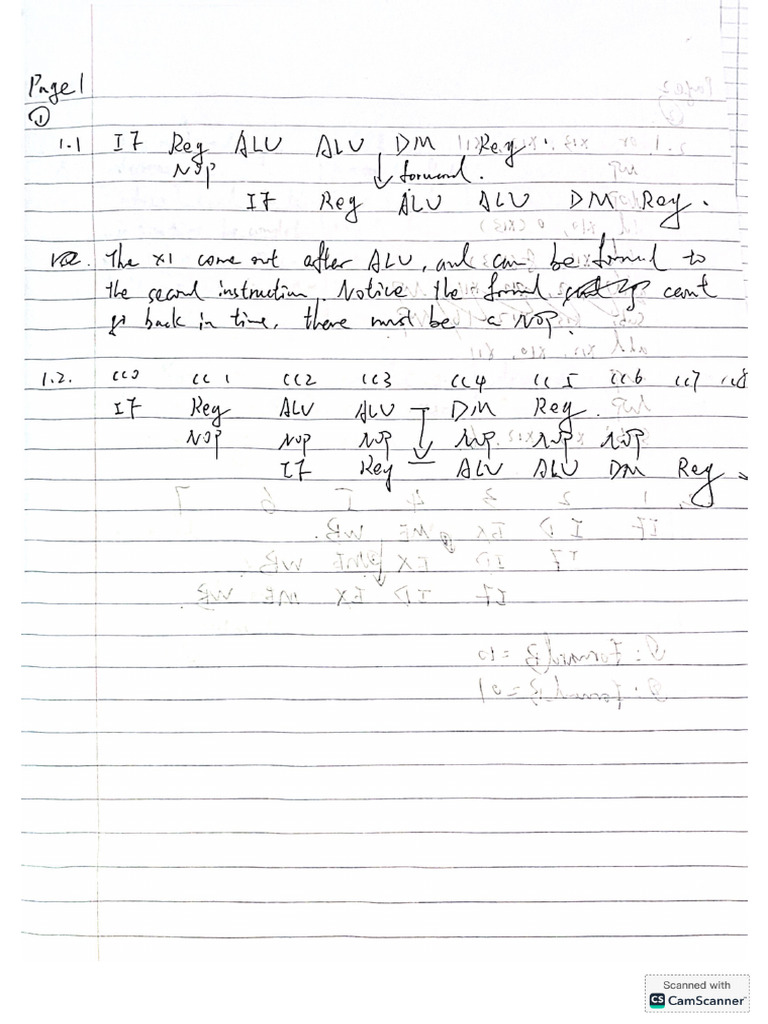 Page 1
①
1.1 IF Reg ALU ALU DM Reg
NOP ↓ forward.
IF Reg ALU ALU DM Reg.
The x1 come out after ALU, and can be forward to
the second instruction. Notice the forward can't
go back in time, there must be a NOP.
1.2. cc0 cc1 cc2 cc3 cc4 cc5 cc6 cc7 cc8
IF Reg ALU ALU DM Reg.
NOP NOP NOP NOP NOP NOP
IF Reg ALU ALU DM Reg
Scanned with
CS CamScanner